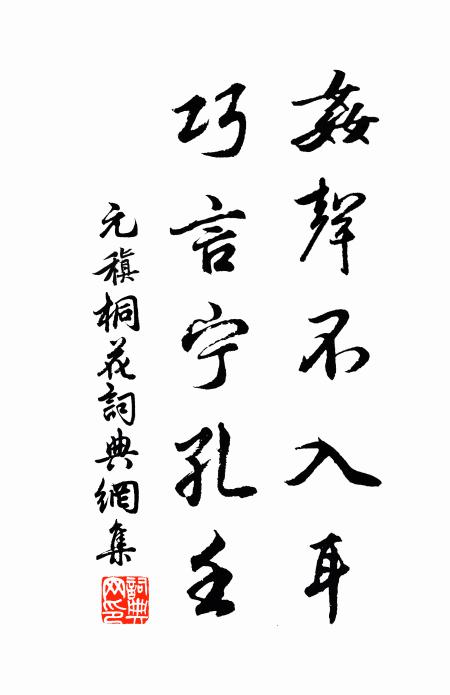 姦聲不入耳
巧言宁孔壬
元稹桐花詞典網集
詞典网印